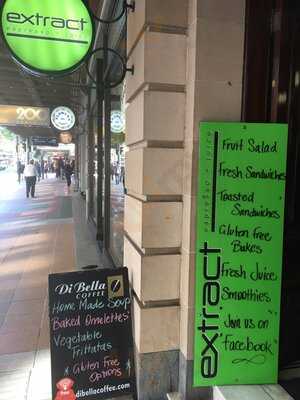 extract
espresso + juice
200
Di Bella
COFFEE
Home Made Soup
Baked Omelettes
Vegetable
Frittatas
* Gluten Free
Options *
dibellacoffee.com
extract
espresso + juice
Fruit Salad
Fresh Sandwiches
Toasted
Sandwiches
Gluten Free
Bakes
Fresh Juice
Smoothies
Join us on
"Facebook"